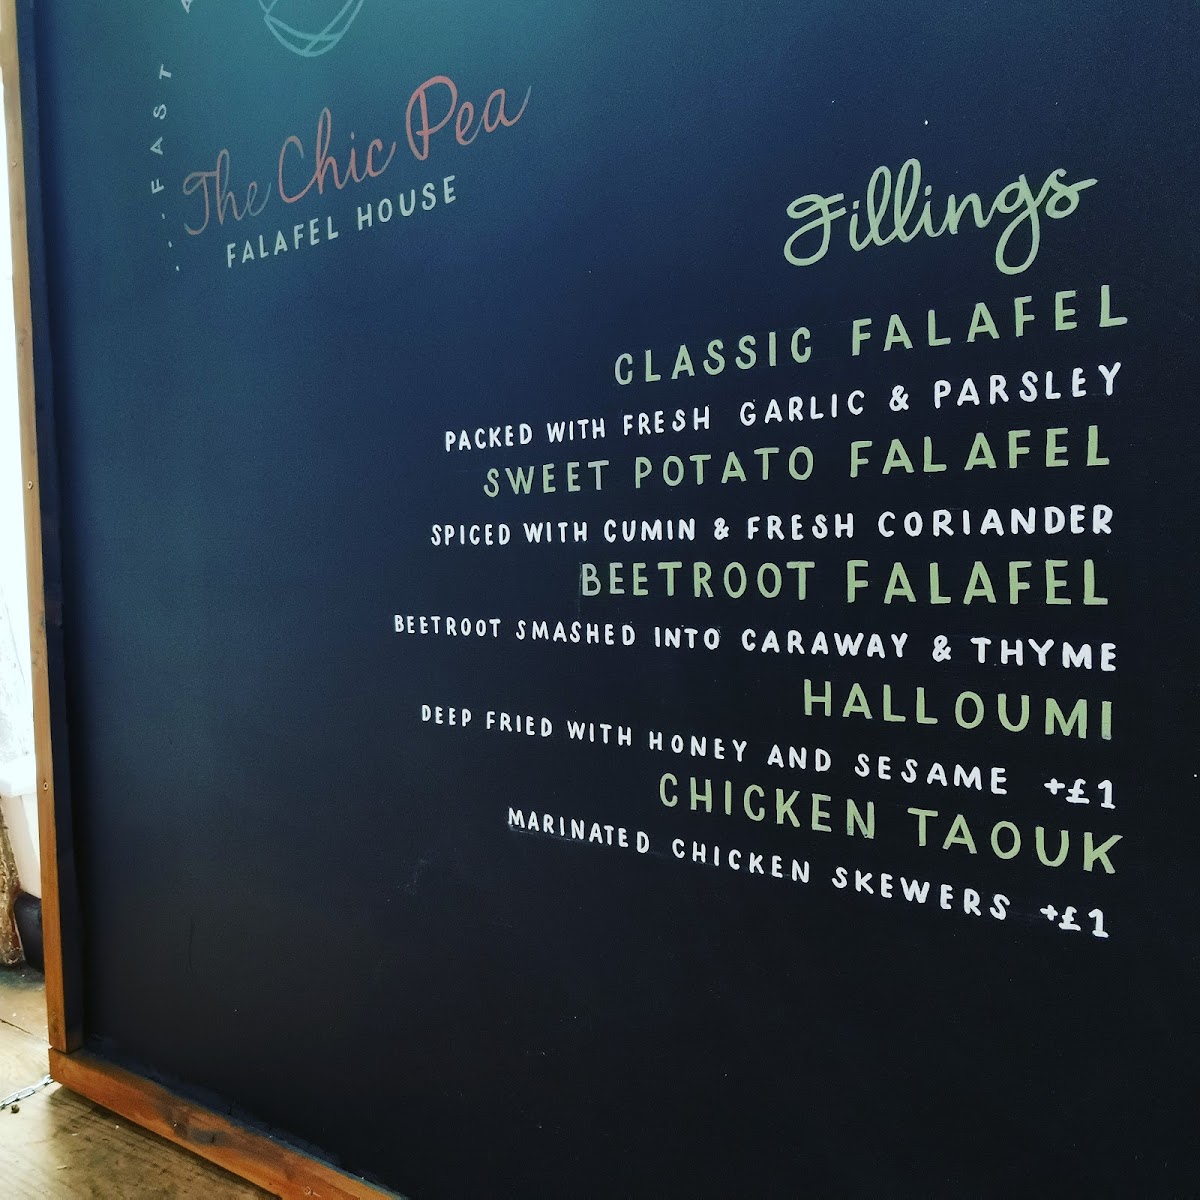 FAST
The Chic Pea
FALAFEL HOUSE
Fillings
CLASSIC FALAFEL
PACKED WITH FRESH GARLIC & PARSLEY
SWEET POTATO FALAFEL
SPICED WITH CUMIN & FRESH CORIANDER
BEETROOT FALAFEL
BEETROOT SMASHED INTO CARAWAY & THYME
HALLOUMI
DEEP FRIED WITH HONEY AND SESAME +£1
CHICKEN TAOUK
MARINATED CHICKEN SKEWERS +£1